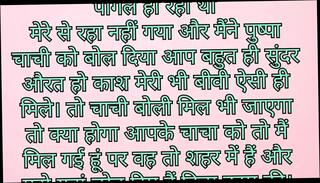 पागल हो रहा था
मेरे से रहा नहीं गया और मैंने पुष्पा
चाची को बोल दिया आप बहुत ही सुंदर
औरत हो काश मेरी भी बीवी ऐसी ही
मिले। तो चाची बोली मिल भी जाएगा
तो क्या होगा आपके चाचा को तो मैं
मिल गई हूं पर वह तो शहर में हैं और